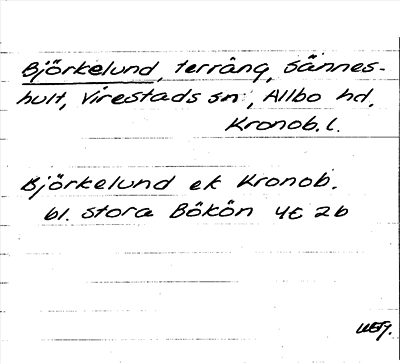 Björkelund, terräng, Sännes-
hult, Virestads sn, Allbo hd,
Kronob. l.
Björkelund ek Kronob.
bl. Stora Bökön 4E 2b